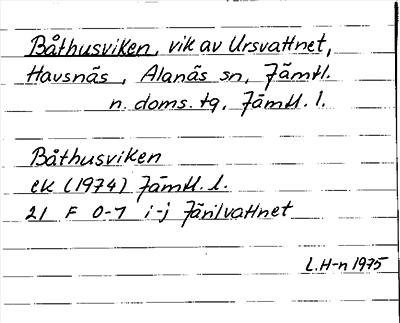 Båthusviken, vik av Ursvattnet,
Havsnäs, Alanäs sn, Jämtl.
n. doms. tg, Jämtl. l.
Båthusviken
ek (1974) Jämtl. l.
21 F 0-1 i-j Järilvattnet
L.H-n 1975